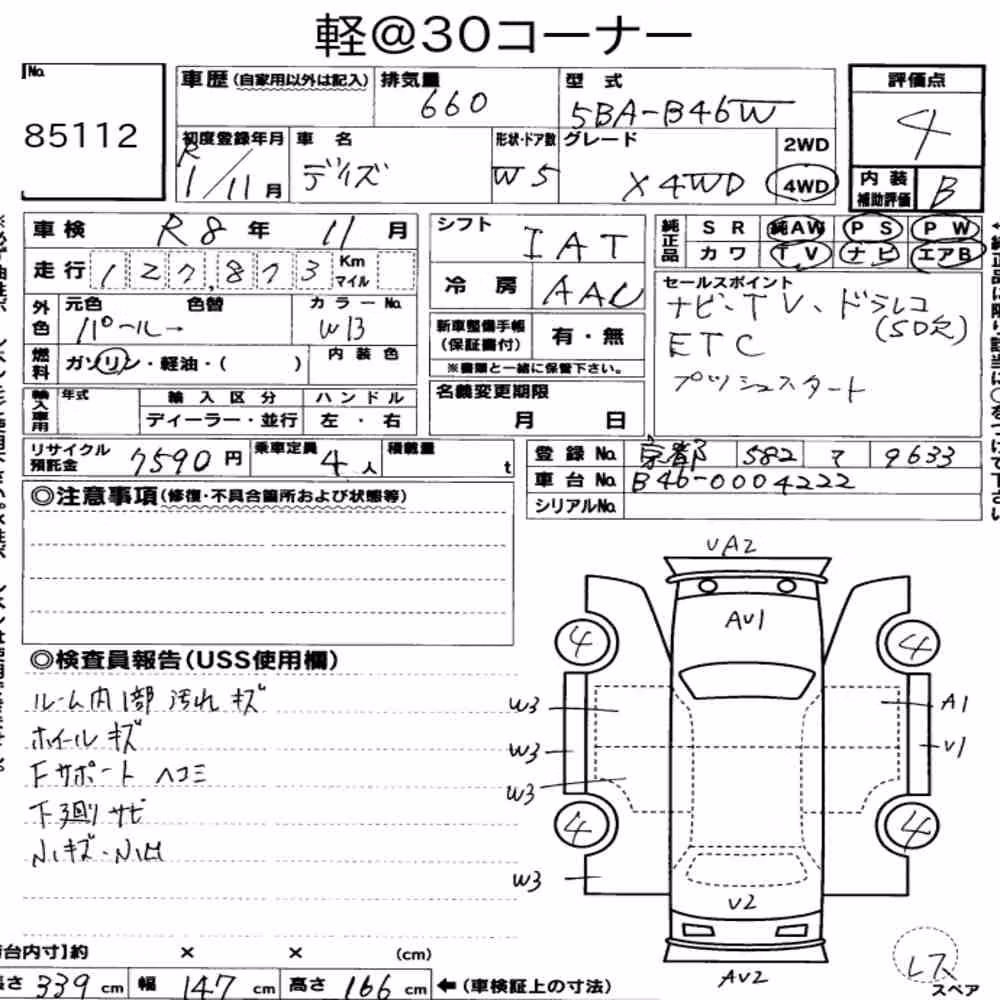 軽@30コーナー
No. 85112
車歴(自家用以外は記入) 排気量 660 型式 5BA-B46W
初度登録年月 R1/11月 車名 デイズ 形状・ドア数 W5 グレード X 4WD 2WD 4WD
評価点 4
内装補助評価 B
車検 R8年 11月
走行 127,873 Km マイル
外色 元色 パール 色替 カラーNo. W13
燃料 ガソリン・軽油・( ) 内装色
輸入車用 年式 輸入区分 ディーラー・並行 ハンドル 左・右
シフト IAT
冷房 AAC
新車整備手帳(保証書付) 有・無
※書類と一緒に保管下さい。
名義変更期限 月 日
純正品 SR 純AW PS PW
カワ TV ナビ エアB
セールスポイント
ナビ、TV、ドラレコ
(50欠)
ETC
プッシュスタート
リサイクル預託金 7590円 乗車定員 4人 積載量 t
登録No. 京都 582 マ 9633
車台No. B46-0004222
シリアルNo.
◎注意事項(修復・不具合箇所および状態等)
◎検査員報告(USS使用欄)
ルーム内1部 汚れ キズ
ホイール キズ
Fサポート ヘコミ
下廻り サビ
小キズ・小凹
UA2
AU1
4 4
W3 A1
W3 U1
W3
4 4
W3
U2
AU2
レス
スペア
荷台内寸】約 × × (cm)
長さ 339 cm 幅 147 cm 高さ 166 cm ←(車検証上の寸法)